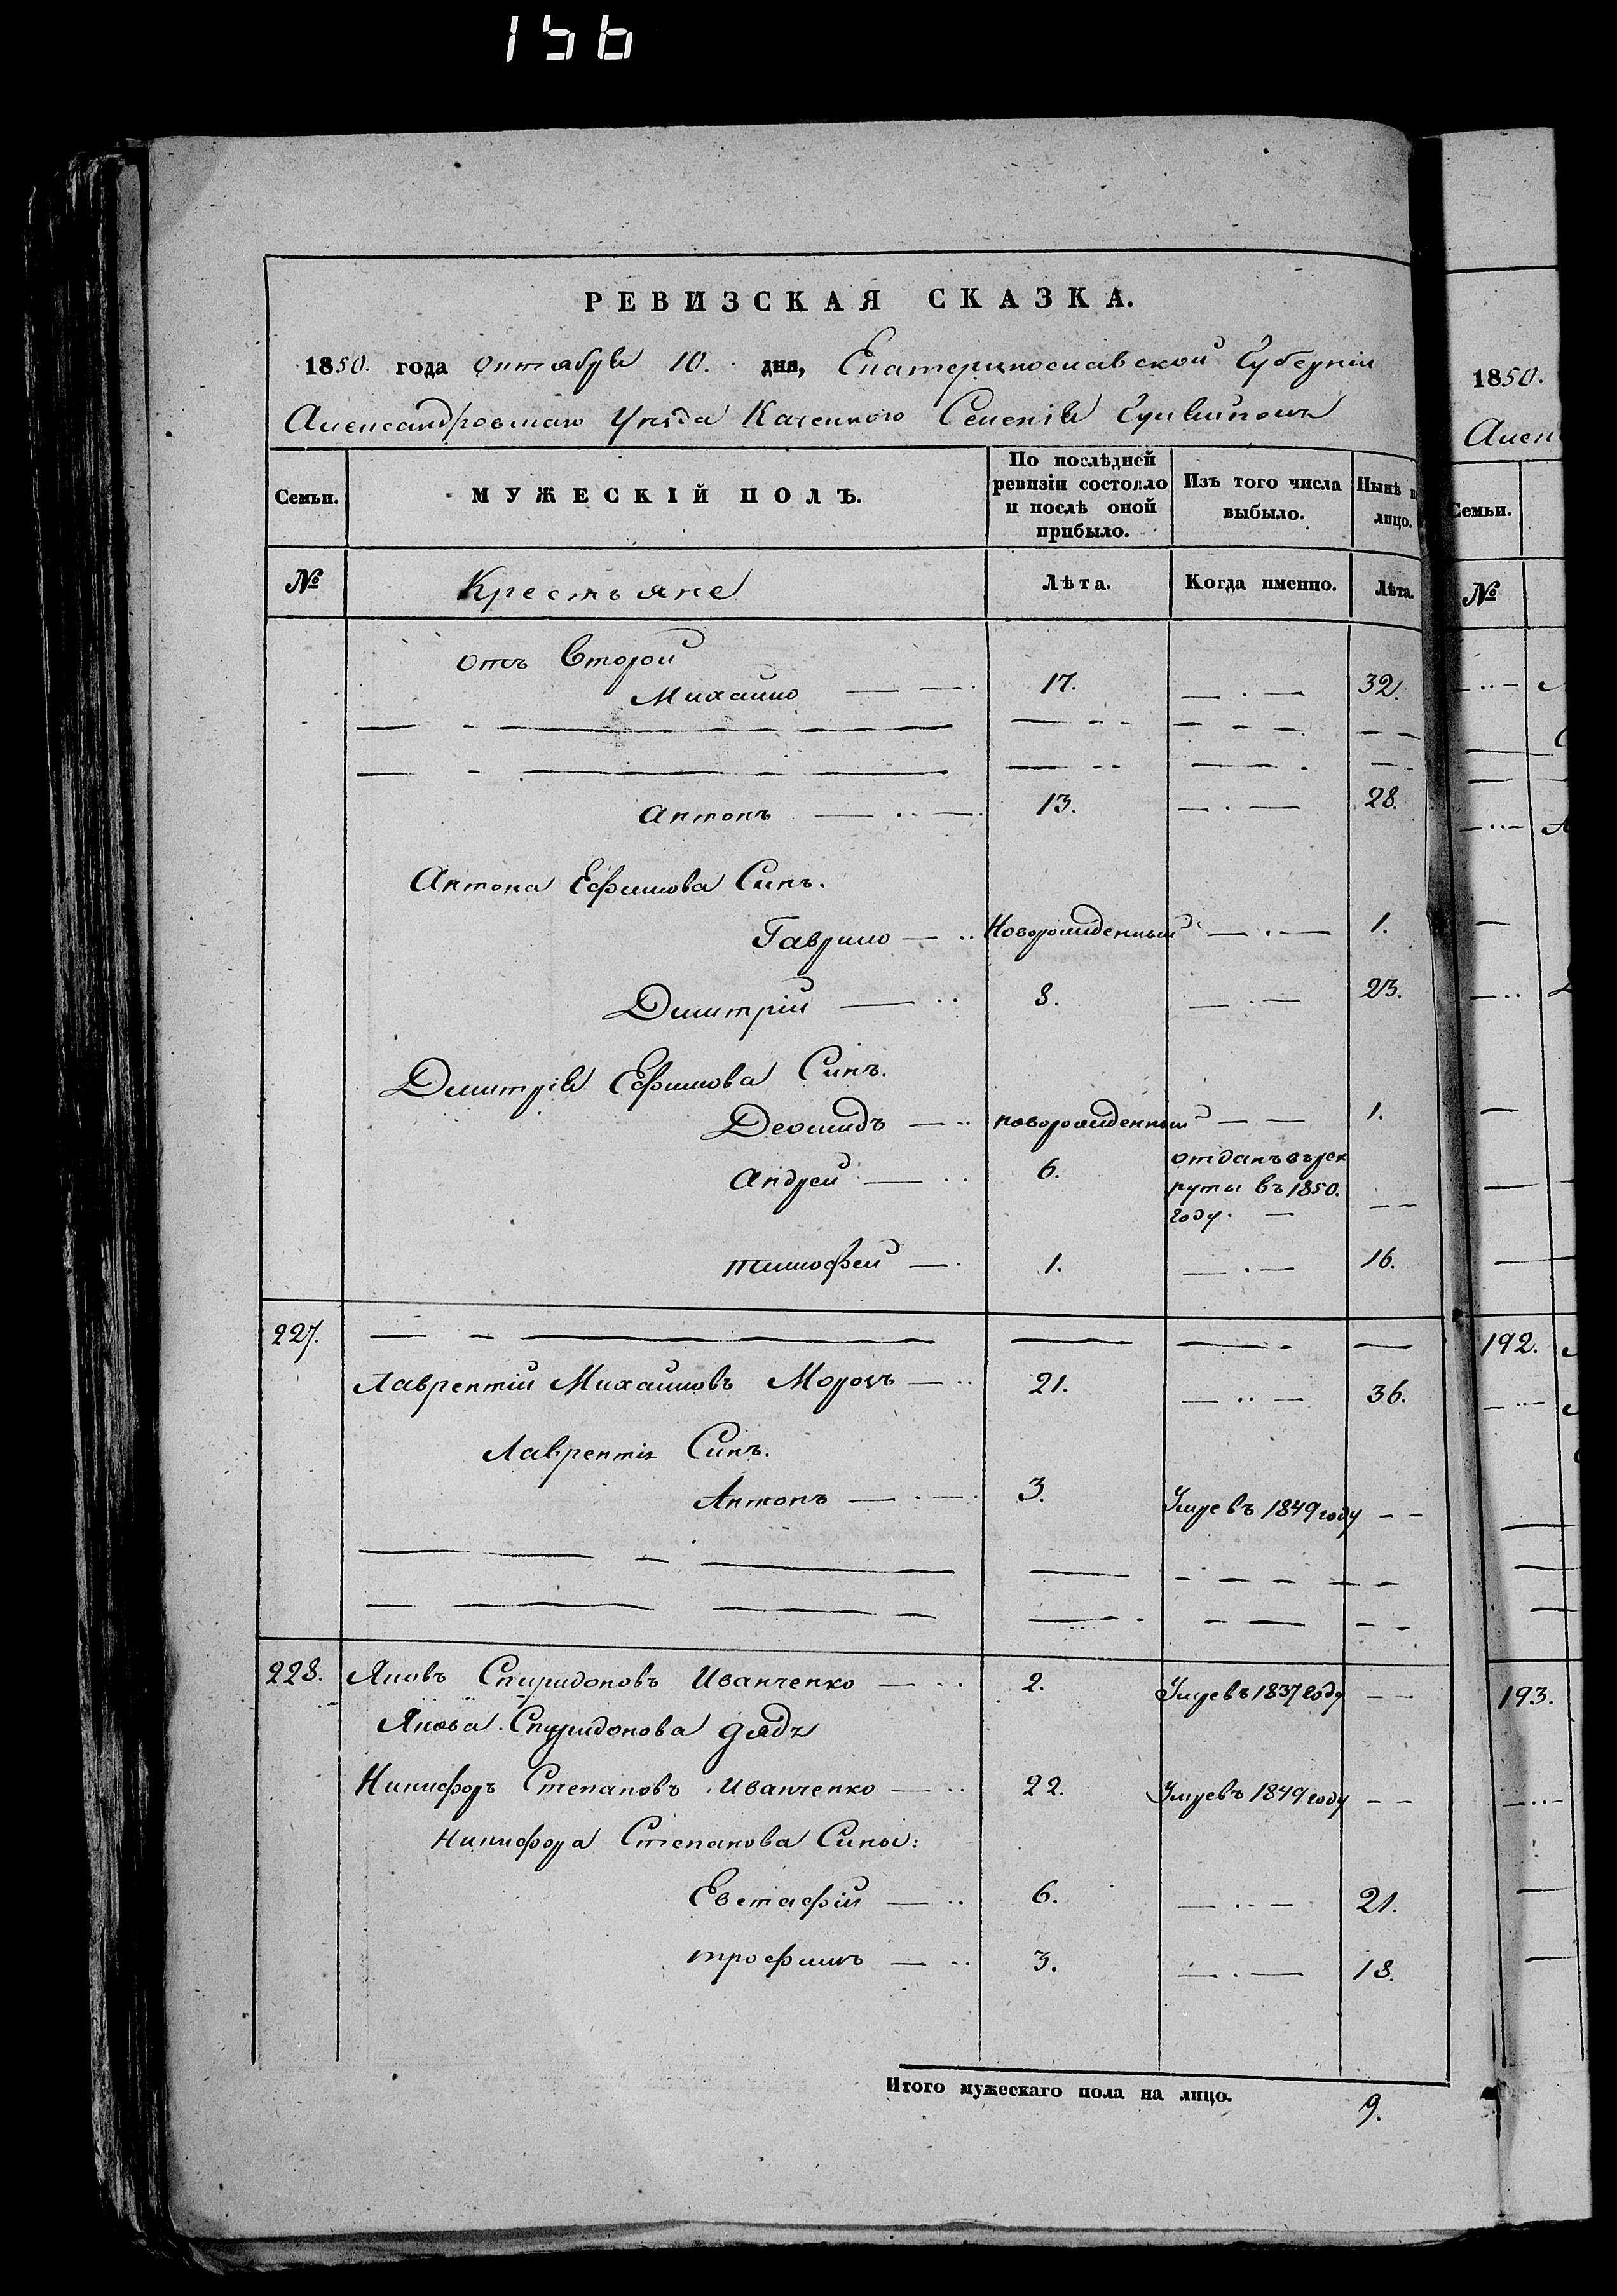 156
РЕВИЗСКАЯ СКАЗКА.
1850. года октября 10. дня, Екатеринославской Губернии
Александровскаго Уезда Казенного Селения
Семьи. МУЖЕСКІЙ ПОЛЪ. По послѣдней ревизіи состояло и послѣ оной прибыло. Изъ того числа выбыло. Нынѣ лицо.
№ Крестьяне Лѣта. Когда именно. Лѣта.
отъ второй
Михайло 17. 32.
Антонъ 13. 28.
Антона Ефимова Синъ.
Гаврило Новорожденный 1.
Дмитрій 8. 23.
Дмитрія Ефимова Синъ.
Деомидъ новорожденный 1.
Андрей 6. отданъ въ рек
руты въ 1850.
году.
тимофей 1. 16.
227.
Лаврентій Михайловъ Морозъ 21. 36.
Лаврентія Синъ.
Антонъ 3. Умре въ 1849 году
228. Яковъ Спиридоновъ Иванченко 2. Умре въ 1837 году
Якова Спиридонова дядя
Никифоръ Степановъ Иванченко 22. Умре въ 1849 году
Никифора Степанова Сины:
Евстафій 6. 21.
трофимъ 3. 18.
Итого мужескаго пола на лицо. 9.
1850.
Семьи.
№
192.
193.